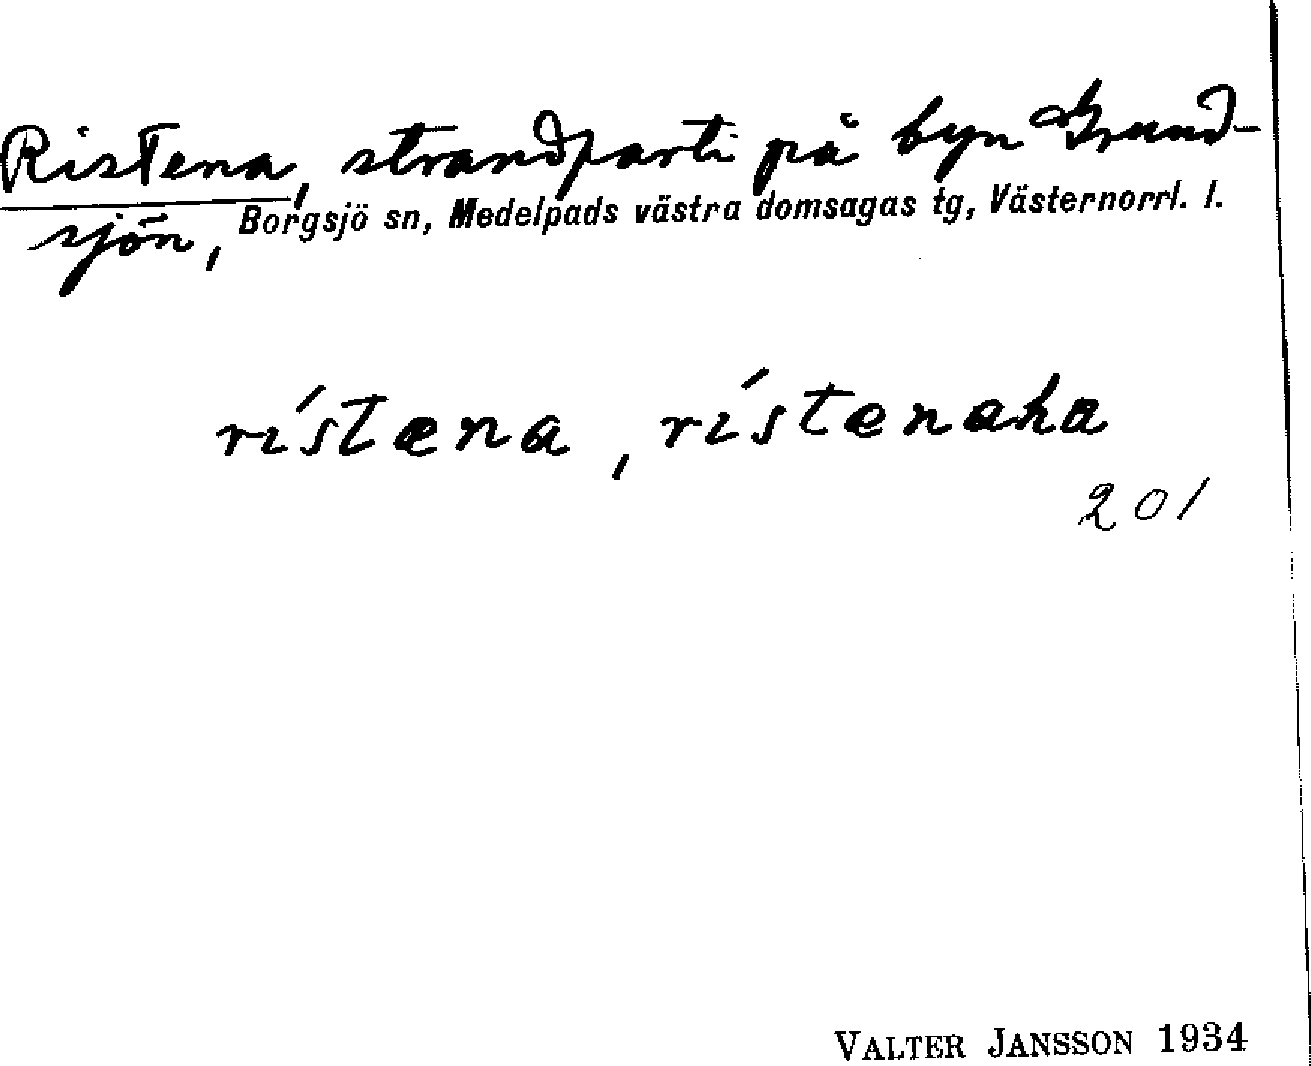 Ristena, strandparti på byn Grund-
sjön, Borgsjö sn, Medelpads västra domsagas tg, Västernorrl. l.
rístæna, rístenaka
201
VALTER JANSSON 1934